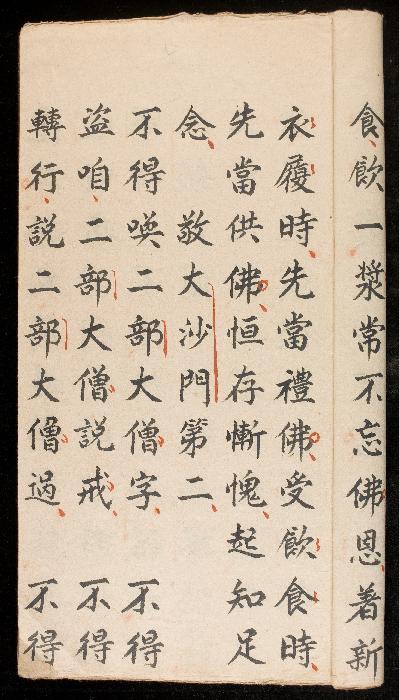 食飲一漿常不忘佛恩着新
衣履時先當禮佛受飲食時
先當供佛恒存慚愧起知足
念 敬大沙門第二
不得喚二部大僧字 不得
盗咱二部大僧説戒 不得
轉行説二部大僧過 不得